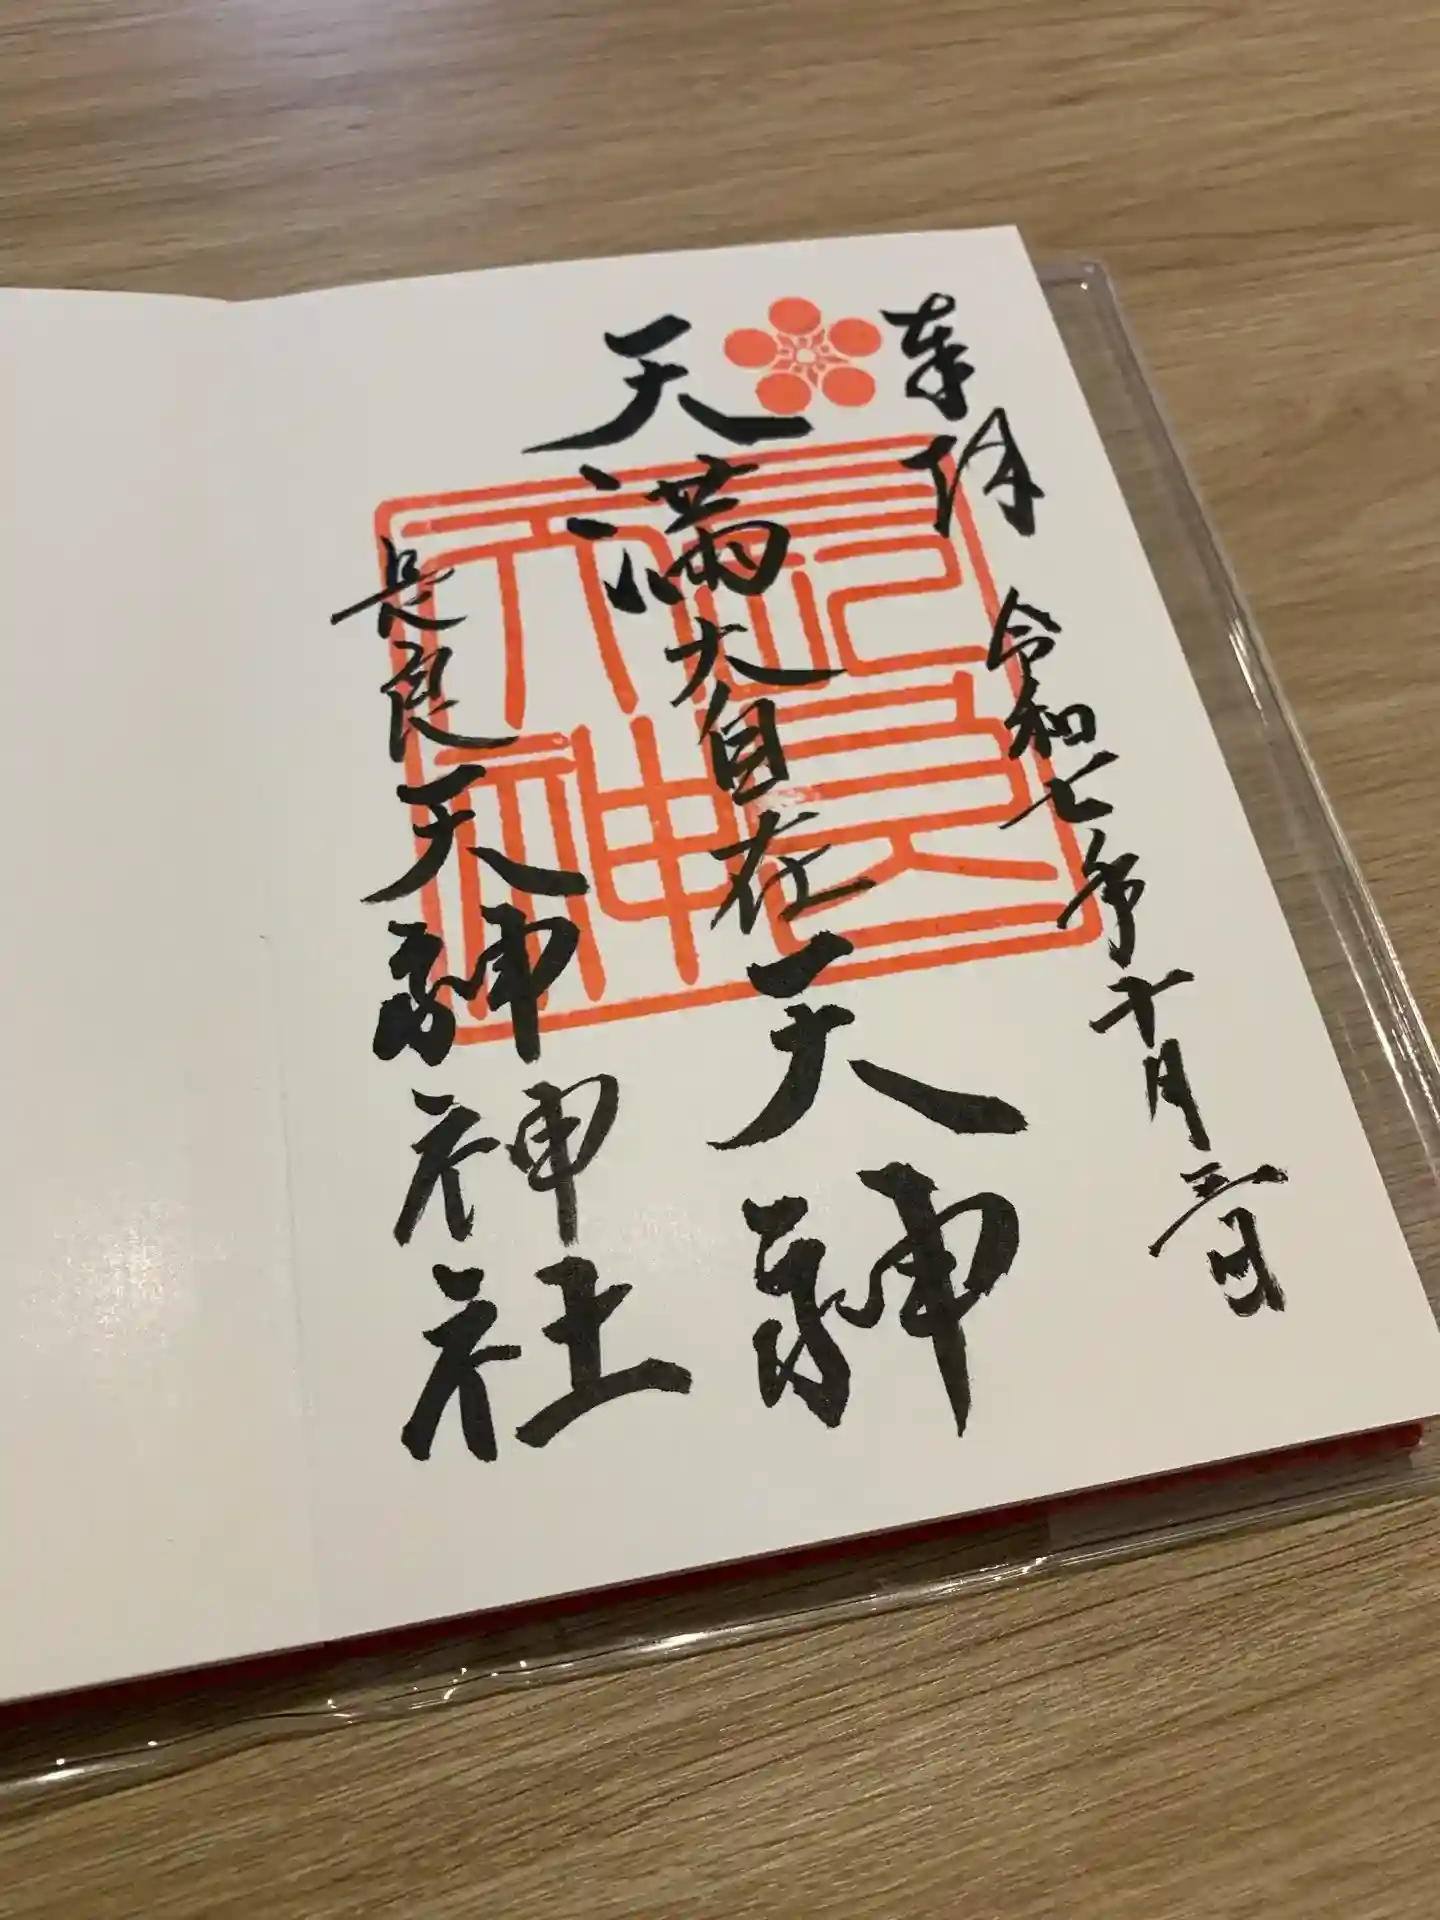 奉拝
令和七年十月三日
天満大自在天神
是良天神神社